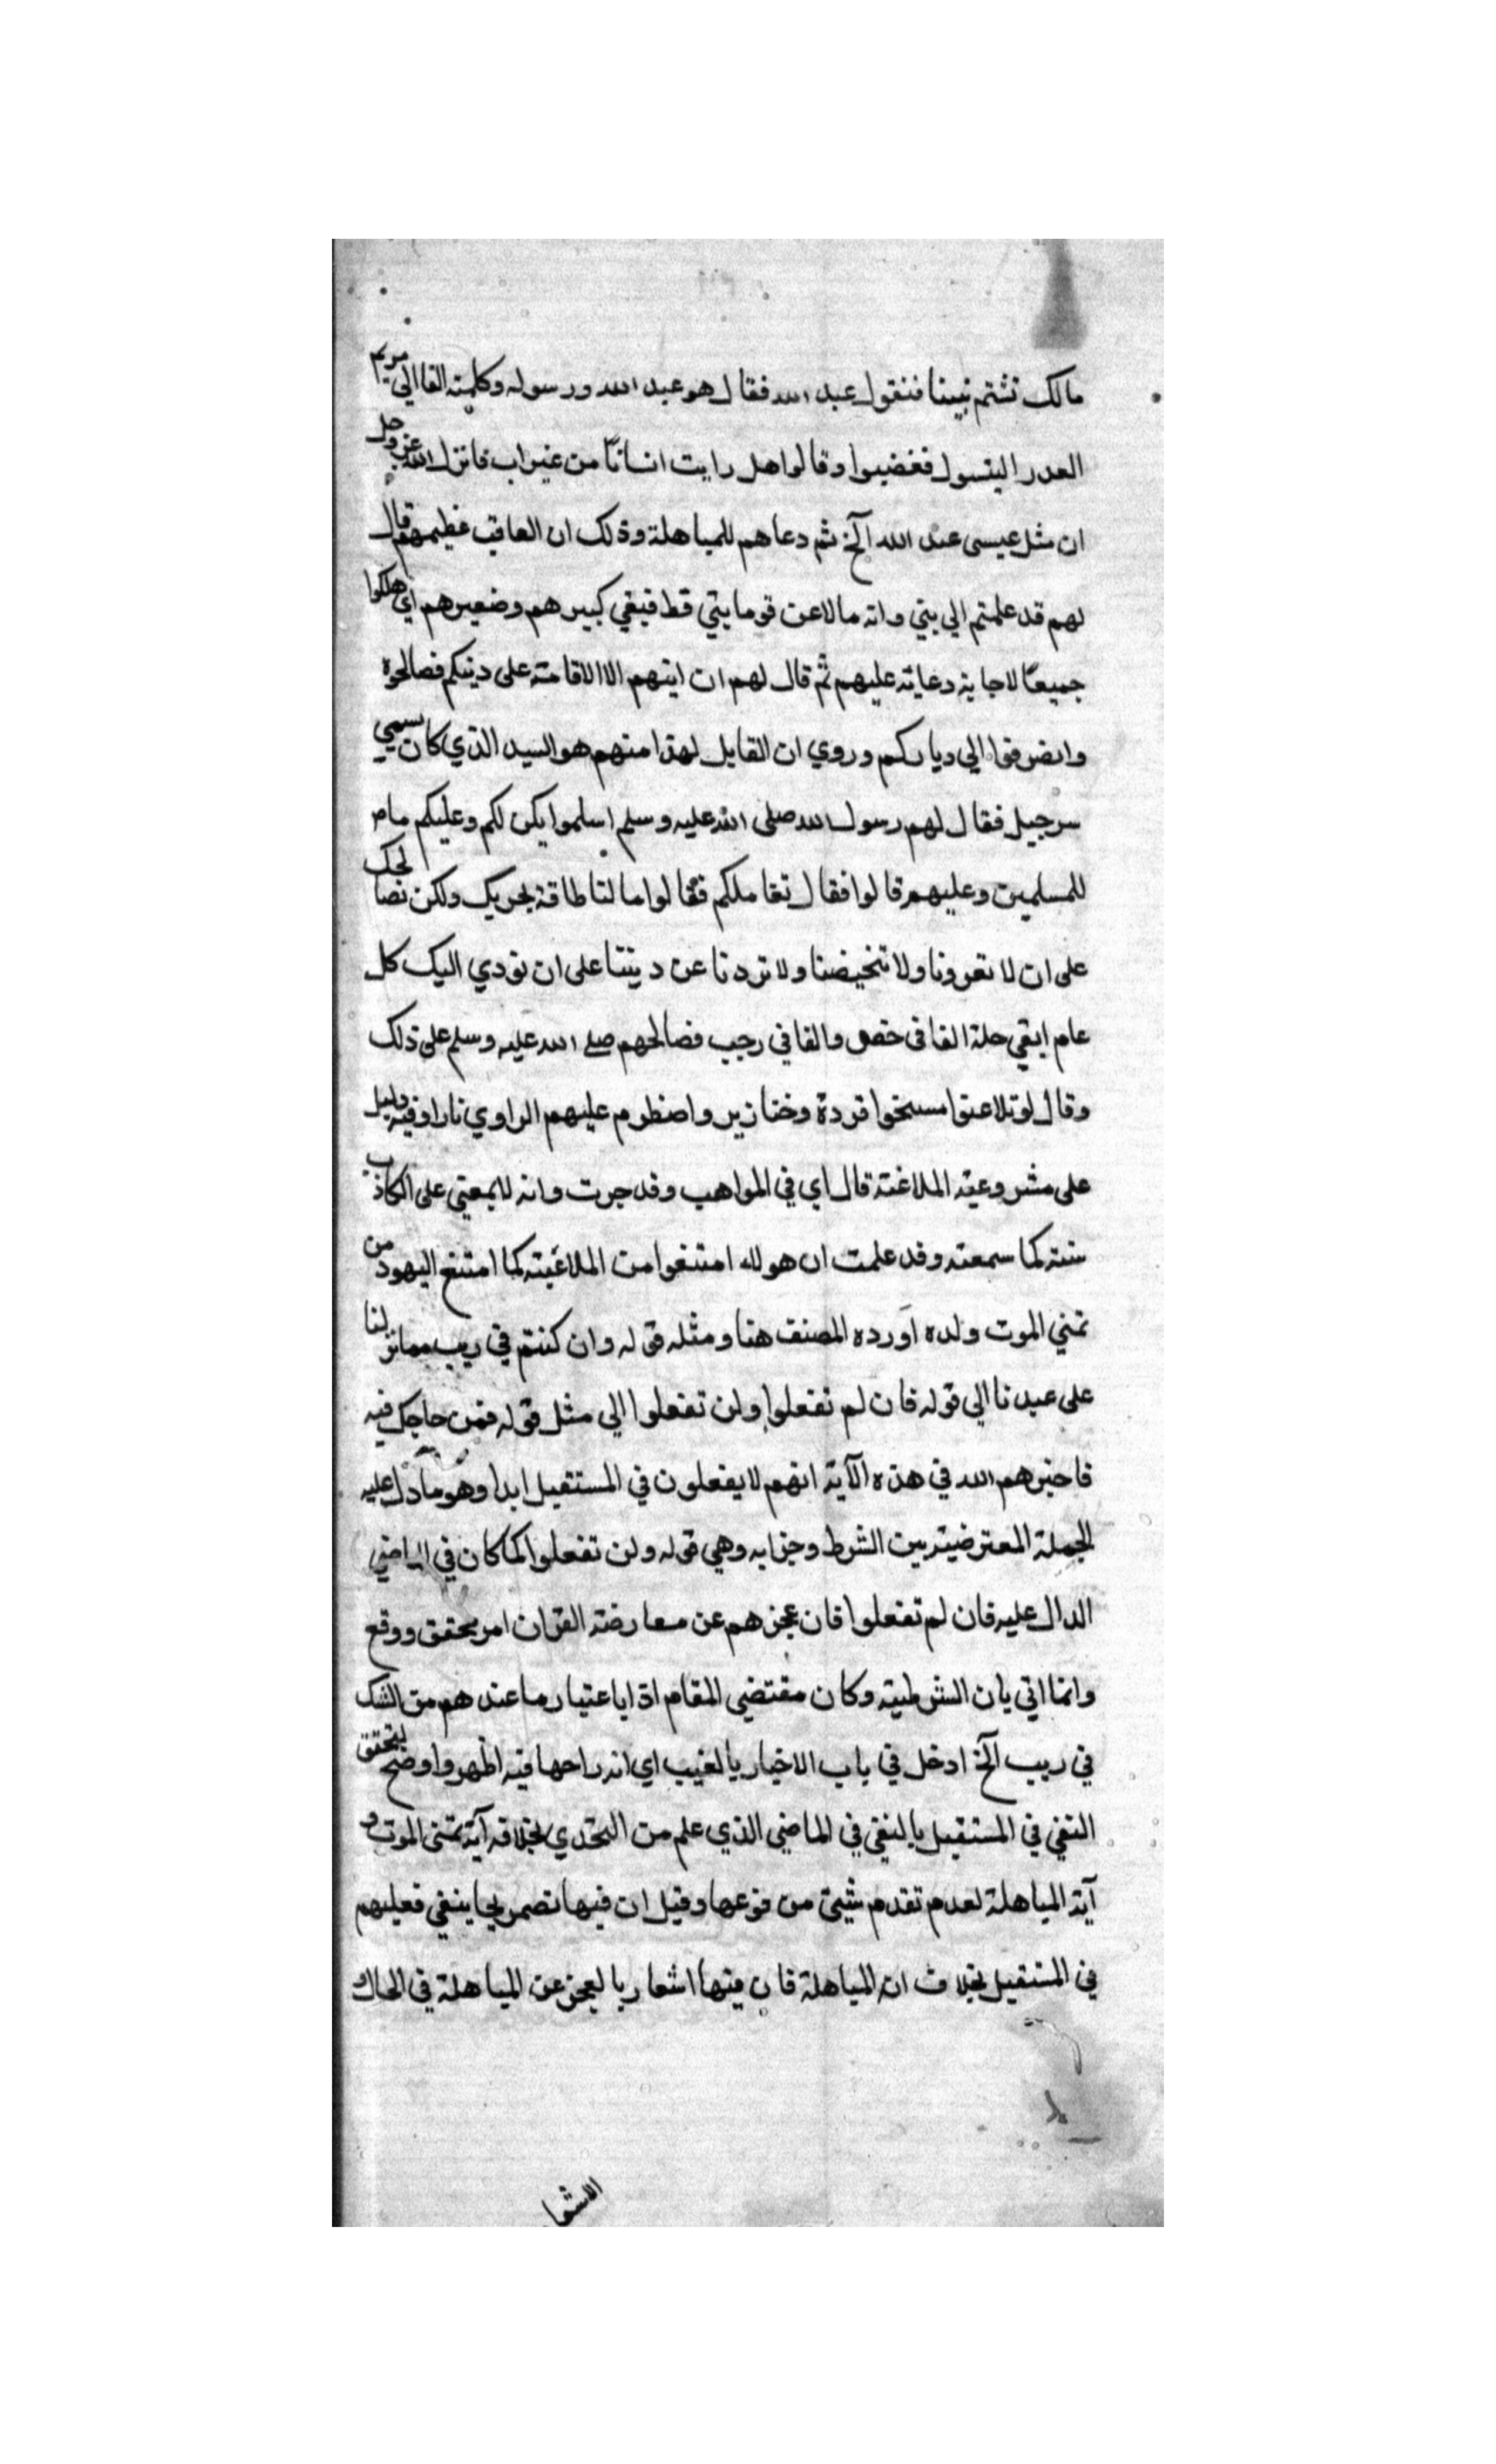 مالك تشتم نبينا فنقول عبد الله فقال هو عبد الله ورسوله وكلمته القاالي مريم
العدرا البتول فغضبوا وقالوا هل رايت انسانًا من غير اب فانزل الله عز وجل
ان مثل عيسى عند الله آلخ ثم دعاهم للمباهلة وذلك ان العاقب عظيمهم قال
لهم قد علمتم الي بتي وانه مالاعن قوما بتي قط فبقي كبيرهم وضعيرهم اي هلكوا
جميعًا لاجابة دعائه عليهم ثم قال لهم ان ابتهم الا الاقامته على دينكم فصالحوه
وانصرفوا الي دياركم وروي ان القايل لهذا منهم هو السيد الذي كان يسمي
سرجيل فقال لهم رسول الله صلى الله عليه وسلم اسلموا يكن لكم وعليكم ما
للمسلمين وعليهم قالوا فقال نقاملكم فقالوا مالنا طاقة بحربك ولكن نصالحك
على ان لا تغرونا ولا تخيضنا ولا تردنا عن ديننا على ان نودي اليك كل
عام ابقي حلة الفا في حفص والفا في رجب فصالحهم صلے الله عليه وسلم على ذلك
وقال لو تلاعنوا مسخوا قردة وخنازير واضطرم عليهم الراوي نارا وفيه دليل
على مشروعية الملاغنة قال اي في المواهب وقد جرت وانه لا يمعتي على الكاذب
سنته كما سمعته وقد علمت ان هولاء امتنعوا من الملاغبته كما امتنع اليهود من
تمني الموت ولده اورده المصنف هنا ومثله قوله وان كنتم في ريب مما نزلنا
على عبدنا الي قوله فان لم تفعلوا ولن تفعلوا الي مثل قوله فمن حاجك فيه
فاخبرهم الله في هذه الآية انهم لا يفعلون في المستقبل ابدا وهو ما دل عليه
الجملة المعترضية بين الشرط وجزابه وهي قوله ولن تفعلوا كما كان في الماضي
الدال عليه فان لم تفعلوا فان عجزهم عن معارضته القران امر محقق ووقع
وانما اتي بان الشرطية وكان مقتضي المقام اذا باعتبار ما عندهم من الشك
في ريب آلخ ادخل في باب الاخبار بالغيب اي اندراجها فيه اظهر واوضح لتحقق
النفي في المستقبل بالنفي في الماضي الذي علم من التحدي بخلاف آية تمني الموت و
آية المباهلة لعدم تقدم شيئ من قوعها وقيل ان فيها تصريحا بنفي فعليهم
في المستقبل بخلاف انه المباهلة فان فيها اشعار بالعجز عن المباهلة في الحال
الاشعا